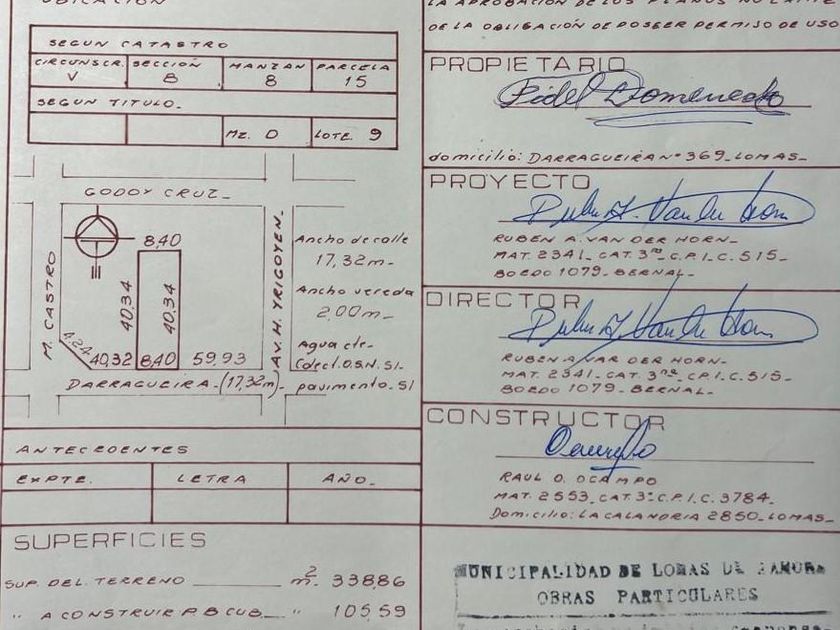 UBICACIÓN
SEGUN CATASTRO
CIRCUNSCR. SECCIÓN MANZAN PARCELA
V B 8 15
SEGUN TITULO_
MZ. D LOTE 9
GODOY CRUZ_
M. CASTRO
AV. H. YRIGOYEN_
8,40
40,34
40,34
4,24
40,32
8,40
59,93
DARRAGUEIRA_(17,32m)_
Ancho de calle
17,32m_
Ancho vereda
2,00m_
Agua cte_
Colect. O.S.N. SI_
pavimento_SI
ANTECEDENTES
EXPTE. LETRA AÑO_
SUPERFICIES
SUP. DEL. TERRENO m² 338,86
" A CONSTRUIR P.B CUB._ " 105,59
LA APROBACIÓN DE LOS PLANOS NO
DE LA OBLIGACIÓN DE POSEER PERMISO DE USO
PROPIETARIO
Fidel Domenech
domicilio: DARRAGUEIRA Nº 369_LOMAS_
PROYECTO
RUBÉN A. VAN DER HORN_
MAT. 2341_CAT. 3ra_C.P.I.C. 515_
BOEDO 1079_BERNAL_
DIRECTOR
RUBEN A. VAR DER HORN_
MAT. 2341_CAT. 3ra_C.P.I.C. 515_
BOEDO 1079_BERNAL_
CONSTRUCTOR
RAUL O. OCAMPO
MAT. 2553_CAT 3ª C.P.I.C. 3784_
Domicilio: LA CALANDRIA 2850_LOMAS_
MUNICIPALIDAD DE LOMAS DE ZAMORA
OBRAS PARTICULARES